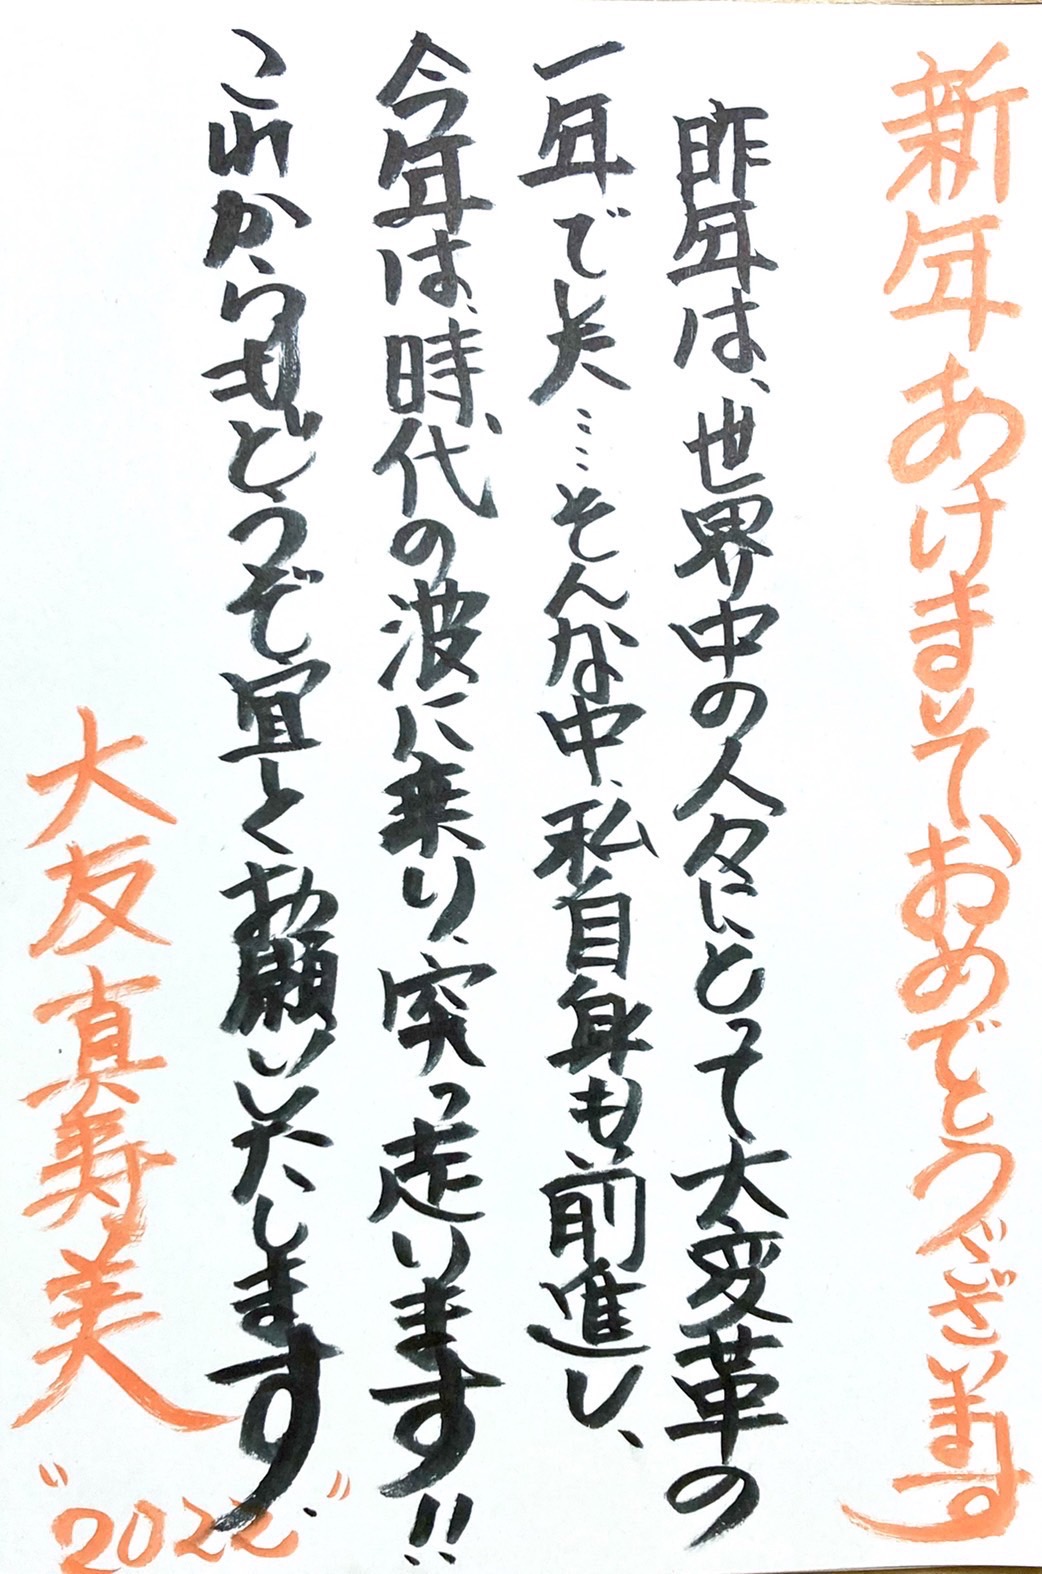 新年あけましておめでとうございます
昨年は、世界中の人々にとって大変革の
一年でした……そんな中、私自身も前進し、
今年は、時代の波に乗り、突っ走います!!
これからもどうぞ宜しくお願いいたします。
大友真寿美
"2022"